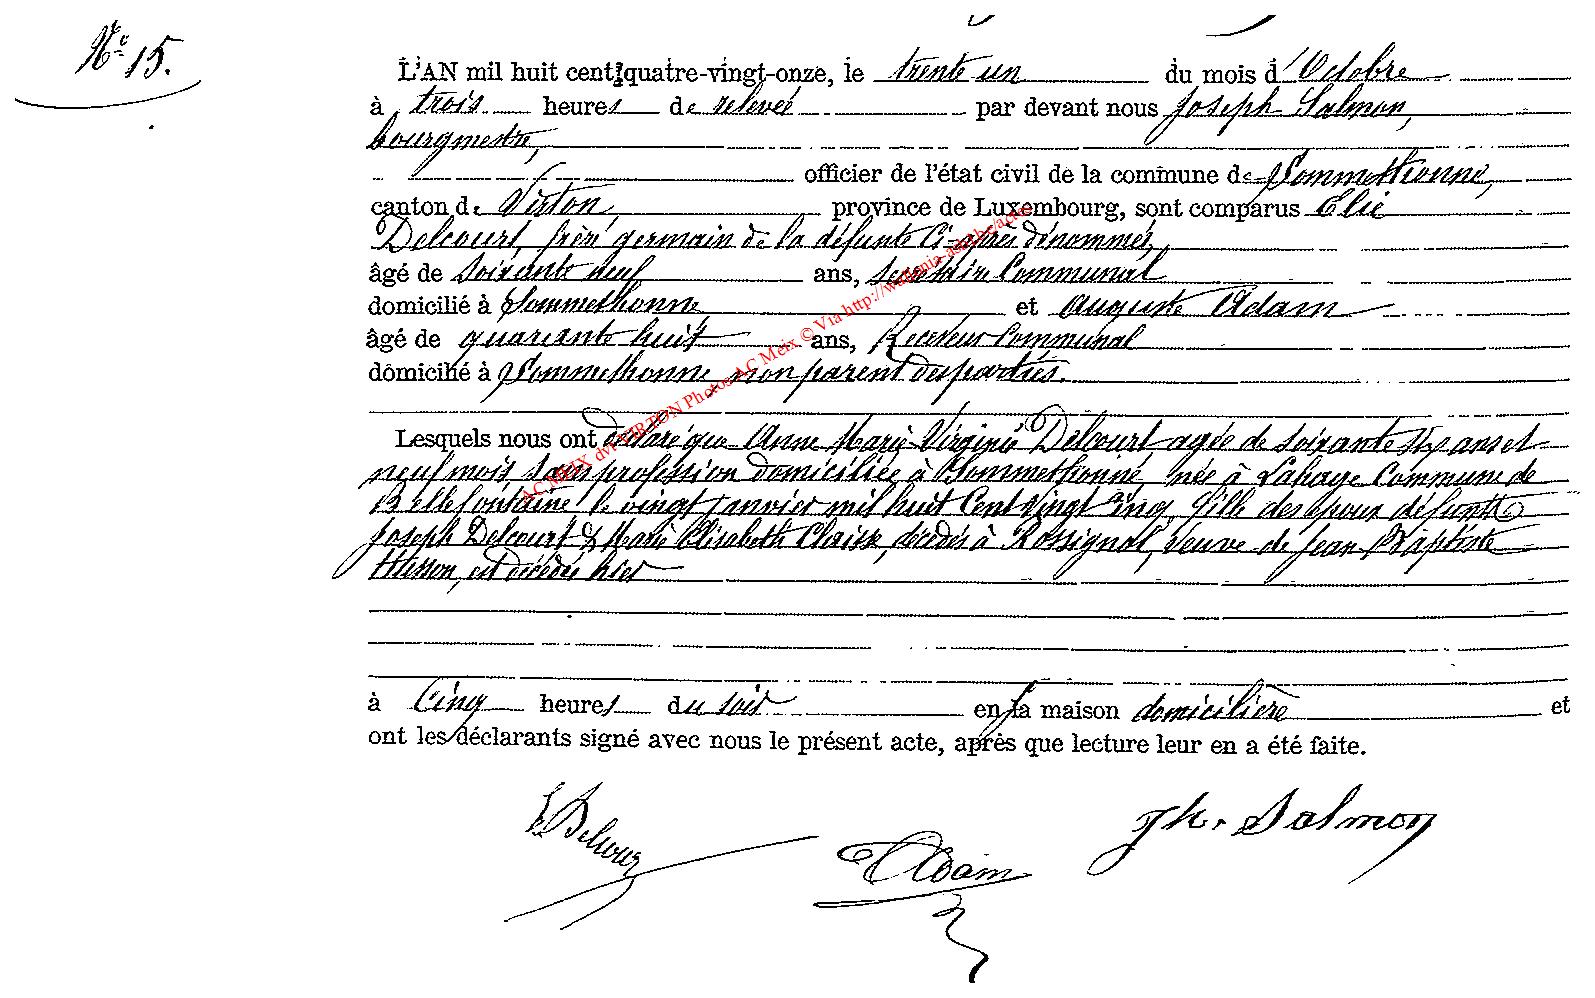 N° 15.
L'AN mil huit cent quatre-vingt-onze, le trente un du mois d'Octobre
à trois heures de relevée par devant nous Joseph Salmon,
bourgmestre,
officier de l'état civil de la commune de Sommethonne,
canton de Virton, province de Luxembourg, sont comparus Elie
Delcourt, frère germain de la défunte ci-après dénommée,
âgé de soixante neuf ans, secrétaire Communal
domicilié à Sommethonne et Auguste Adam
âgé de quarante huit ans, Receveur Communal
domicilié à Sommethonne non parent des parties.
Lesquels nous ont déclaré que Anne Marie Virginie Delcourt agée de soixante six ans et
neuf mois, sans profession domiciliée à Sommethonne, née à Lahage Commune de
Bellefontaine le vingt janvier mil huit Cent Vingt Cinq, fille des époux défunts
Joseph Delcourt & Marie Elisabeth Claisse, décédés à Rossignol, veuve de Jean Baptiste
Husson, est décédée hier
à Cinq heures du soir en sa maison domicilière et
ont les déclarants signé avec nous le présent acte, après que lecture leur en a été faite.
E Delcour
Adam
Jh. Salmon
AC MEIX dvt VIRTON Photos AC Meix © Via http://wallonia-asbl.be/actes